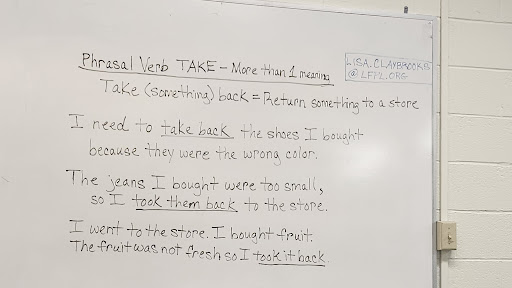 Phrasal Verb TAKE - More than 1 meaning
LISA.CLAYBROOKS
@LFPL.ORG
Take (something) back = Return something to a store
I need to take back the shoes I bought
because they were the wrong color.
The jeans I bought were too small,
so I took them back to the store.
I went to the store. I bought fruit.
The fruit was not fresh so I took it back.